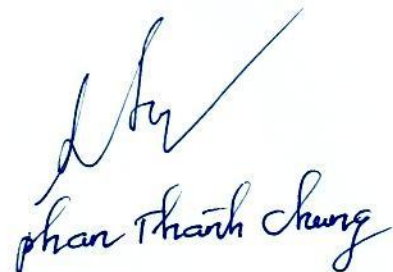 phan Thành Chung